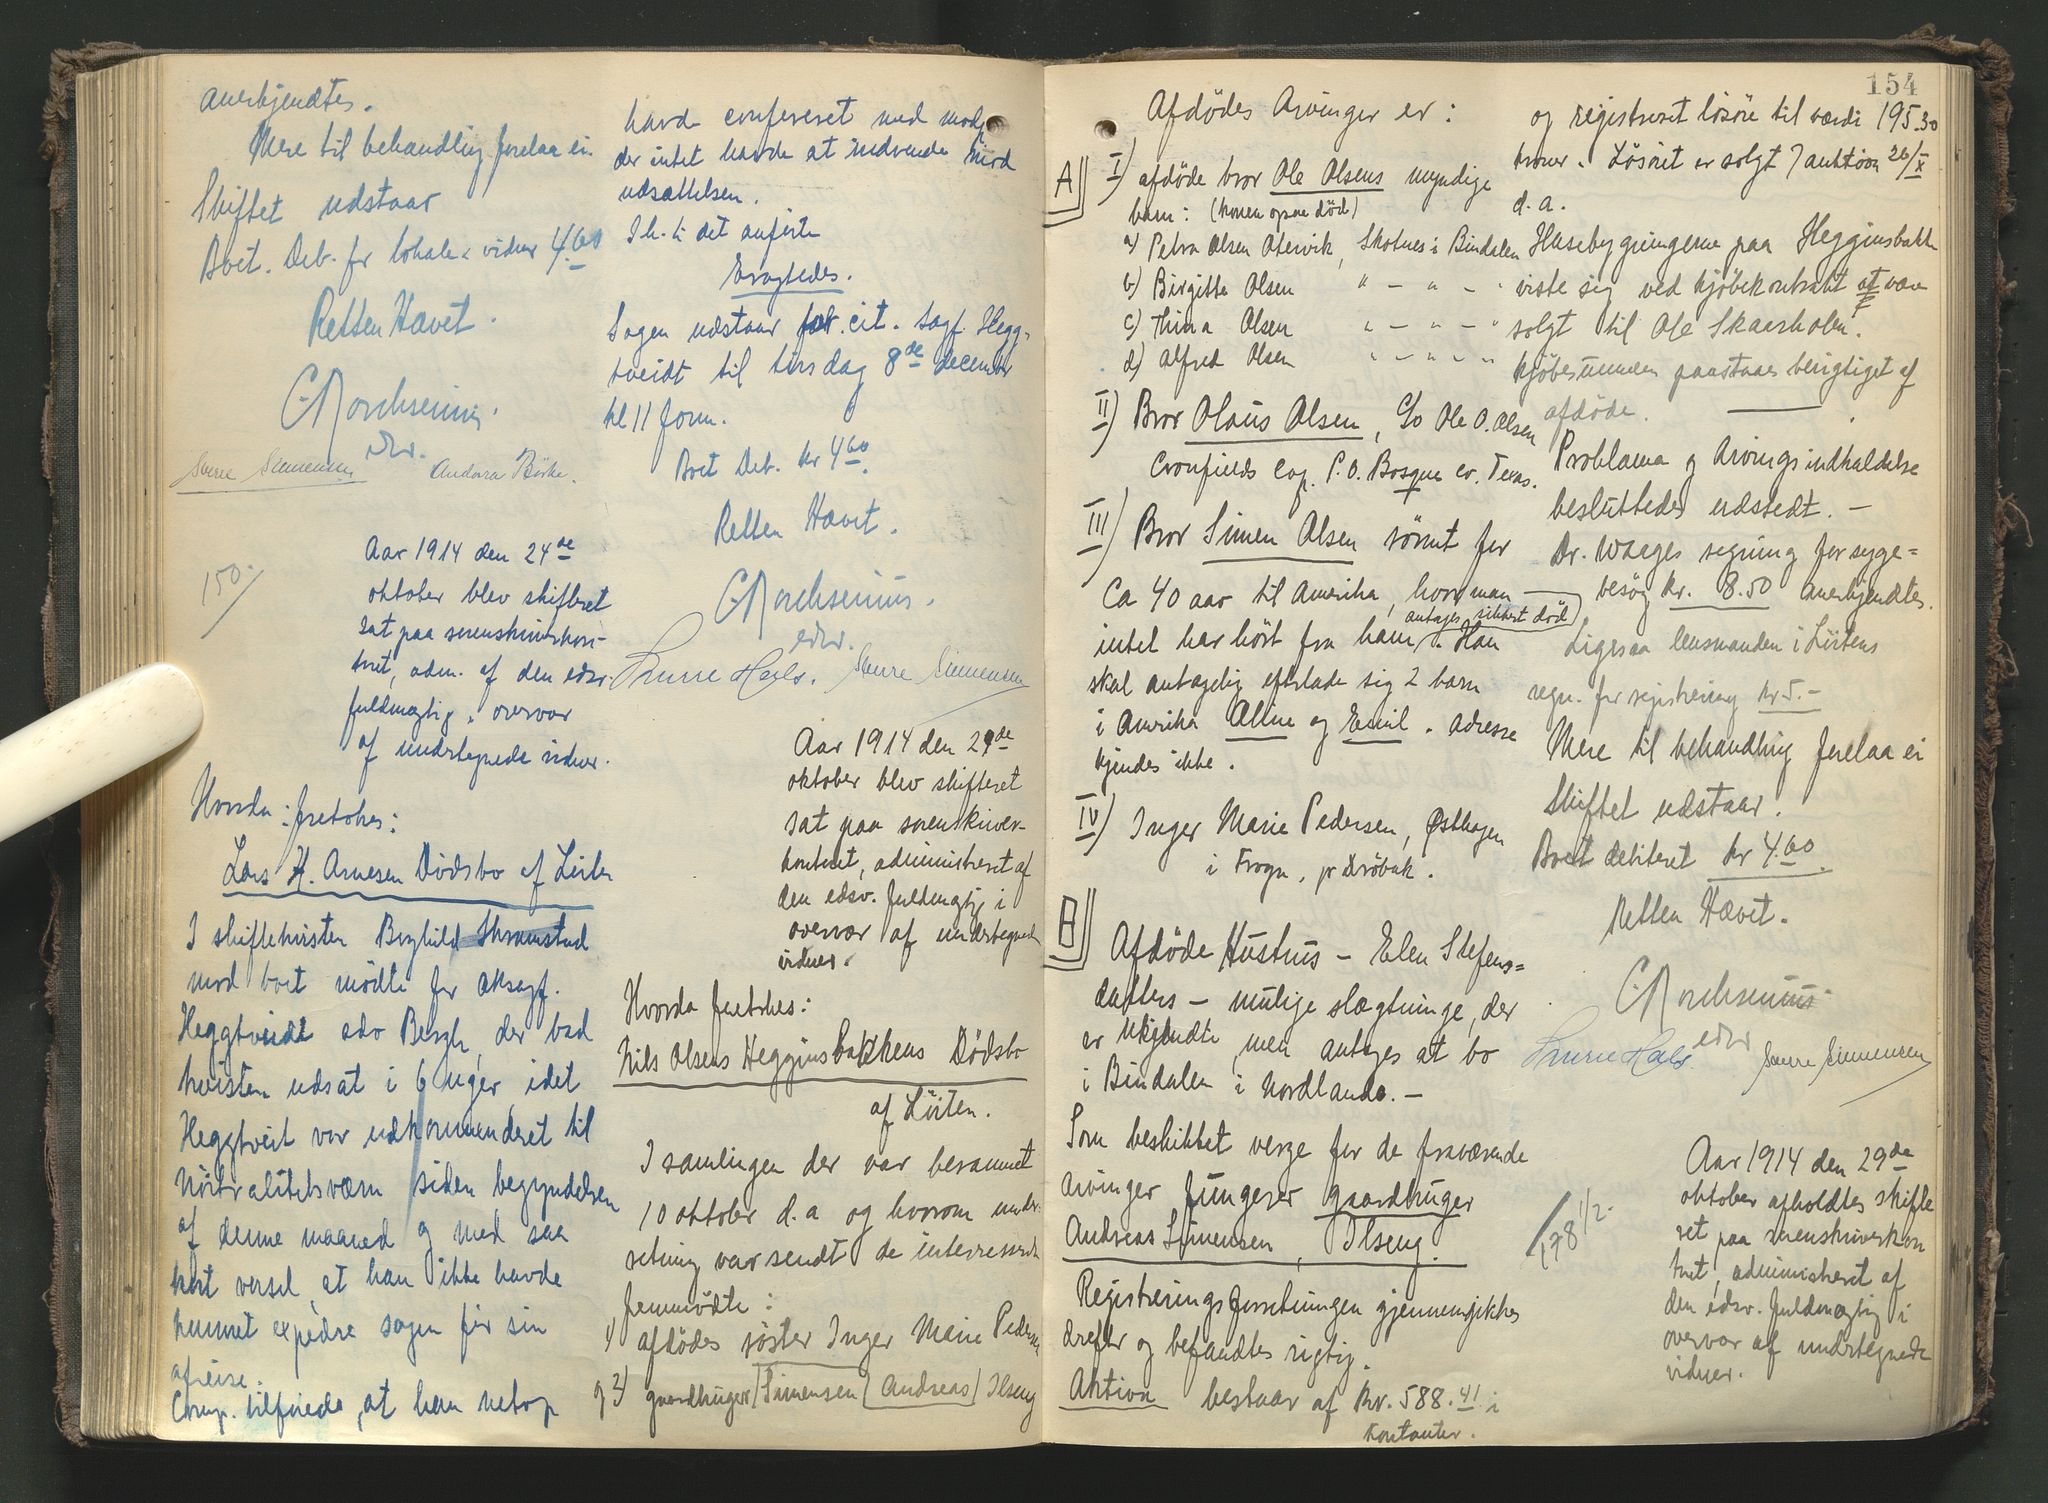 anerkjendtes.
Mere til behandling forelaa ei.
Skiftet udstaar
Boet. Deb. for lokale & vidner 4.60
Retten Hævet.
C. Borchsenius.
edsv.
Sverre Simensen Andora Böhe.
150-/
Aar 1914 den 24de
oktober blev skifteret
sat paa sorenskriverkon-
toret, adm. af den edsv.
fuldmægtig i overvær
af undertegnede vidner.
Hvorda: foretokes:
Lars H. Arnesen Dödsbo af Löiten
I skiftetvisten Borghild Skramstad
mod boet mödte for oksagf.
Heggtveidt adv Bergh, der bad
tvisten udsat i 6 uger, idet
Heggtveit var udkommenderet til
Nöitralitetsværn siden begyndelsen
af denne maaned og med saa
kort varsel, at han ikke havde
kunnet expedre sagen för sin
afreise.
Comp. tilföiede, at han netop
havde confereret med mod,
der intet havde at indvende mod
udsættelsen.
I h. t. det anförte
Eragtedes.
Sagen udstaar for cit. sagf. Hegg-
tveidt til tirsdag 8de december
kl 11 form.
Boet Deb. kr 4.60.
Retten Hævet.
C. Borchsenius.
edsv.
Snorre Hals. Sverre Simensen
Aar 1914 den 29de
oktober blev skifteret
sat paa sorenskriver-
kontoret, administreret af
den edsv. fuldmægtig i
overvær af undertegnede
vidner.
Hvorda foretokes:
Nils Olsens Hegginsbakkens Dödsbo
af Löiten.
I samlingen der var berammet
10 oktober d.a og hvorom under-
retning var sendt de interesserede
fremmödte:
1) afdödes söster Inger Marie Pedersen
og 2) gaardbruger Simensen (Andreas) Ilseng
154
Afdödes Arvinger er:
A) I) afdöde bror Ole Olsens myndige
barn: (konen ogsaa död)
a) Petra Olsen Otervik, Skotnes i Bindalen
b) Birgitte Olsen " - " - "
c) Thina Olsen " - " - "
d) Alfred Olsen " - " - "
II) Bror Olaus Olsen, C/o Ole O. Olsen
Cronfields Cap. P.O. Bosque co. Texas.
III) Bror Simen Olsen römt for
Ca 40 aar til Amerika, hvor man
antages sikkert död
intet har hört fra ham. Han
skal antagelig efterlade sig 2 barn
i Amerika Aline og Emil. Adresse
kjendes ikke.
IV) Inger Marie Pedersen, Østhagen
i Frogn, pr Dröbak.
B) Afdöde Hustrus - Elen Stefens=
datters - mulige slægtninge, der
er ukjendte, men antages at bo
i Bindalen i Nordlands. -
Som beskikket verge for de fraværende
arvinger fungerer gaardbruger
Andreas Simensen, Ilseng.
Registreringsforretningen gjennemgikkes
derefter og befandtes rigtig.
Aktiva bestaar af kr. 588.41 i
kontanter.
og registreret lösöre til værdi 195.30
kroner. Lösöret er solgt I auktion 26/X
d. a.
Husebygningerne paa Hegginsbakken
viste sig ved kjöbekontrakt at være
solgt til Ole Skaarholen.
kjöbesummen paastaaes berigtiget af
afdöde.
Proklama og Arvingsindkaldelse
besluttedes udstedt. -
Dr. Waages regning for syge=
besög kr. 8.50 anerkjendtes.
Ligesaa lensmanden i Löitens
regn. for registrering kr 5.-
Mere til behandling forelaa ei
Skiftet udstaar.
Boet debiteret kr 4.60.
Retten Hævet.
C. Borchsenius
edsv
Snorre Hals Sverre Simensen
178 1/2-
Aar 1914 den 29de
oktober afholdtes skifte
ret paa sorenskriverkon
toret, administreret af
den edsv. fuldmægtig i
overvær af undertegnede
vidner.